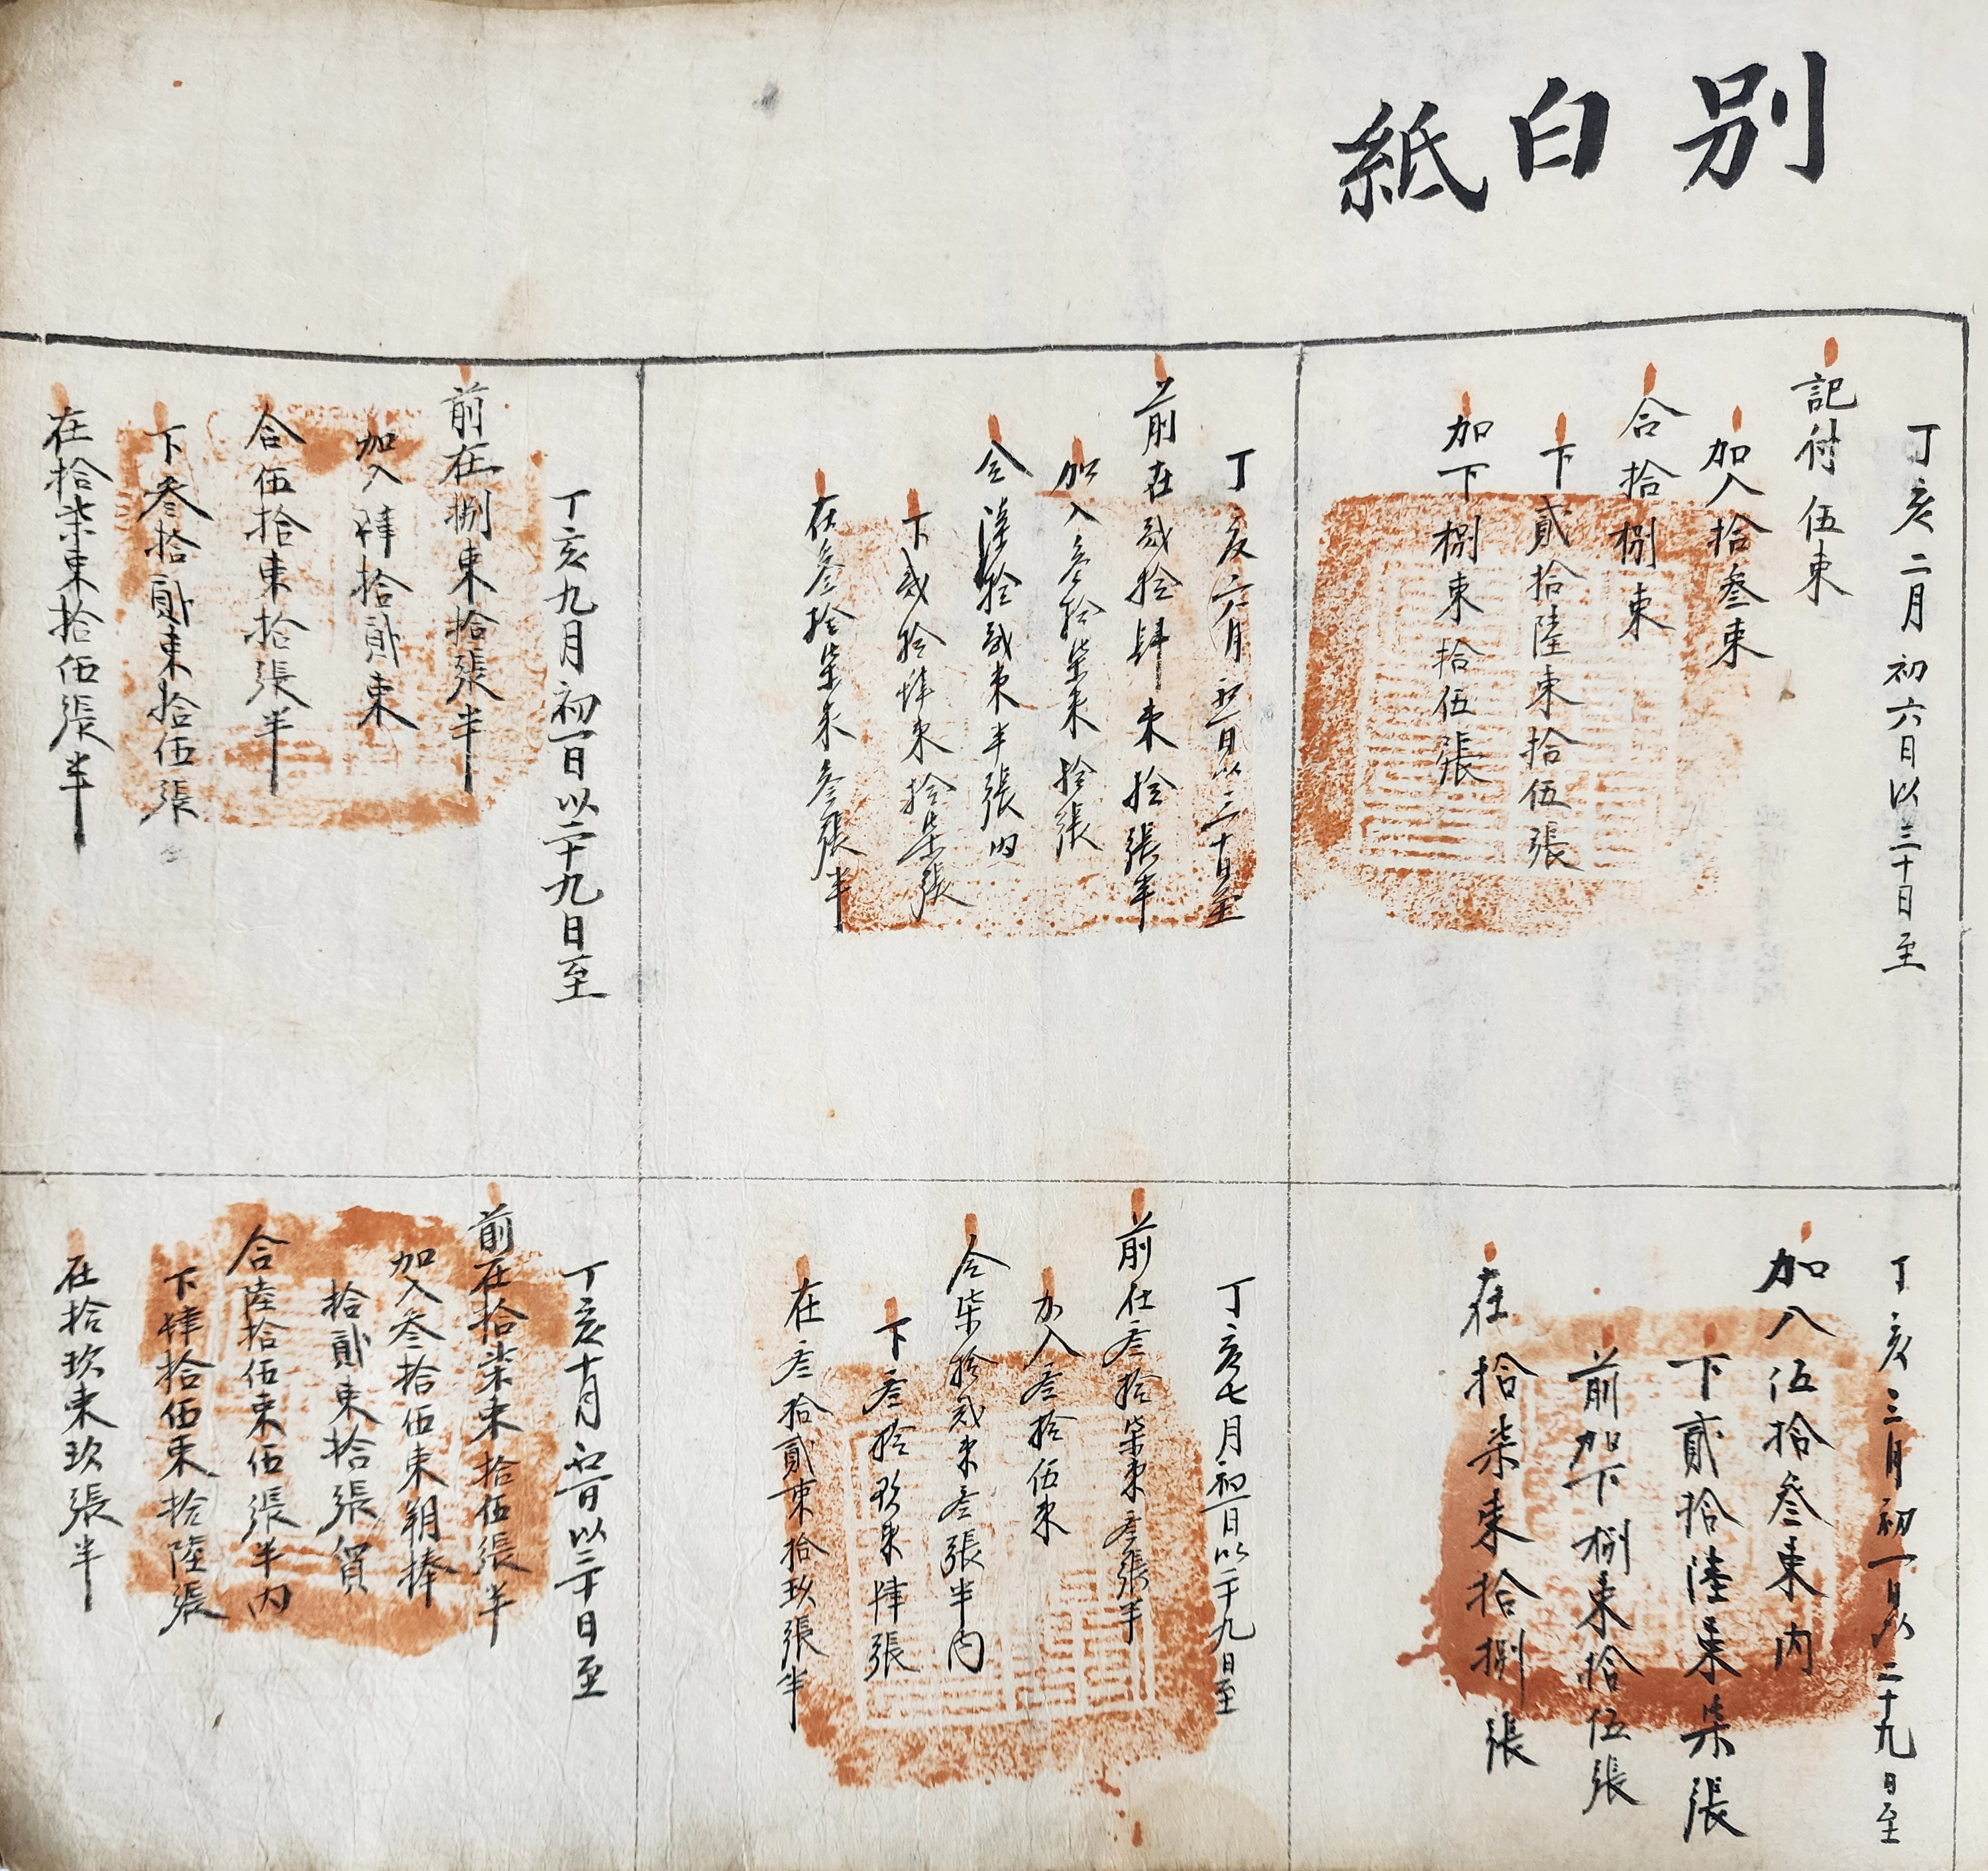 別白紙
丁亥二月初六日以三十日至
記付伍束
加入拾叁束
合拾捌束
下貳拾陸束拾伍張
加下捌束拾伍張
丁亥三月初一日以二十九日至
加入伍拾叁束內
下貳拾陸束柒張
前加下捌束拾伍張
在拾柒束拾捌張
丁亥六月初一日以三十日至
前在貳拾肆束拾張半
加入叁拾柒束拾張
合陸拾貳束半張內
下貳拾肆束拾柒張
在叁拾柒束叁張半
丁亥七月初一日以二十九日至
前在叁拾柒束叁張半
加入叁拾伍束
合柒拾貳束叁張半內
下叁拾玖束肆張
在叁拾貳束拾玖張半
丁亥九月初一日以二十九日至
前在捌束拾張半
加入肆拾貳束
合伍拾束拾張半
下叁拾貳束拾伍張
在拾柒束拾伍張半
丁亥十月初一日以三十日至
前在拾柒束拾伍張半
加入叁拾伍束朔捧
拾貳束拾張貿
合陸拾伍束伍張半內
下肆拾伍束拾陸張
在拾玖束玖張半